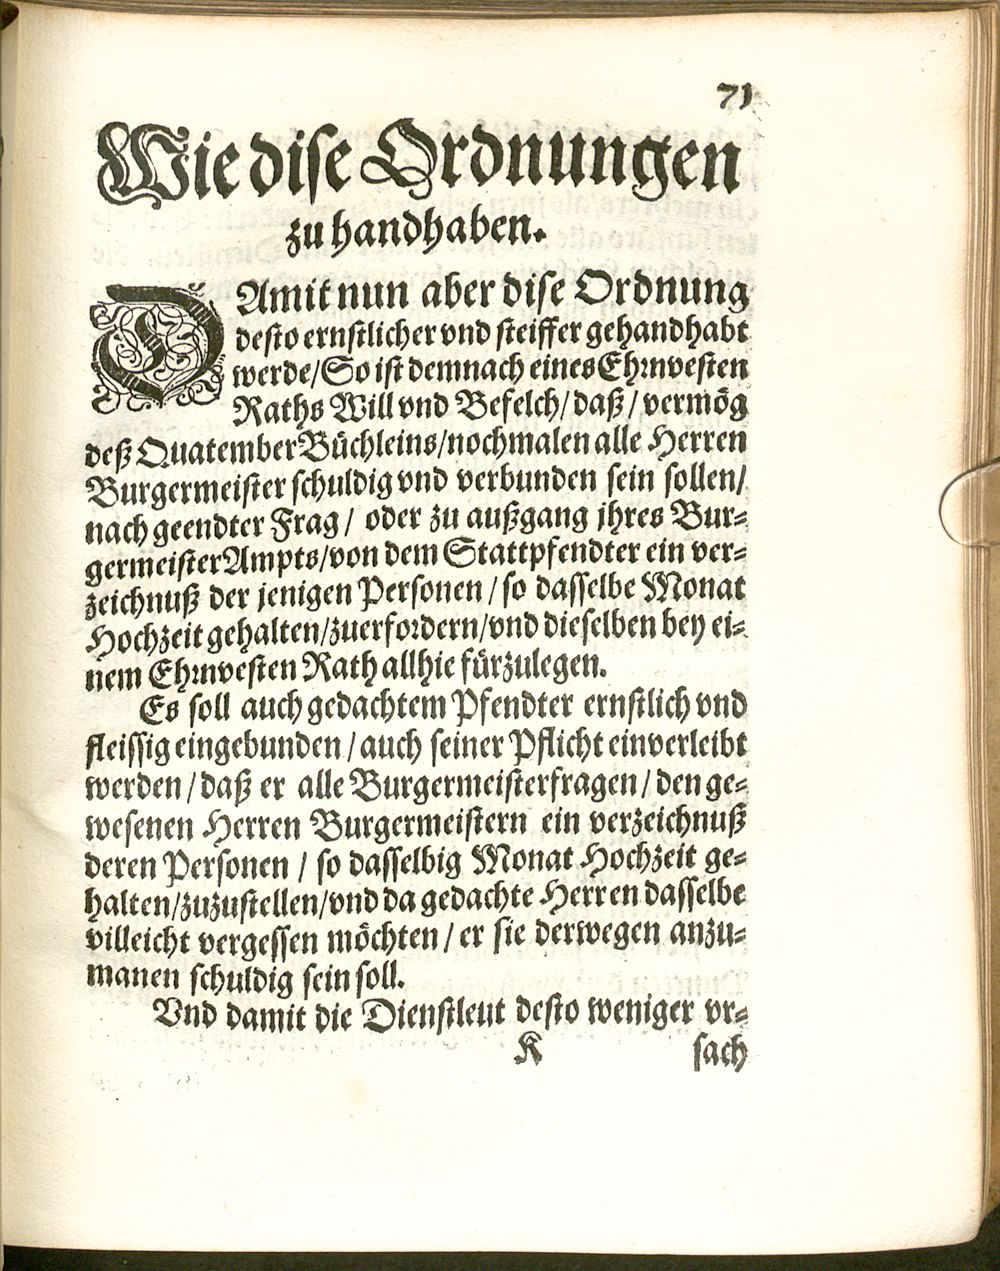 71
Wie dise Ordnungen
zu handhaben.
DAmit nun aber dise Ordnung
desto ernstlicher vnd steiffer gehandhabt
werde/So ist demnach eines Ehrnvesten
Raths Will vnd Befelch/daß/vermög
deß Quatember Büchleins/nochmalen alle Herren
Burgermeister schuldig vnd verbunden sein sollen/
nach geendter Frag/ oder zu außgang jhres Bur⸗
germeister Ampts/von dem Stattpfendter ein ver⸗
zeichnuß der jenigen Personen/so dasselbe Monat
Hochzeit gehalten/zuerfordern/vnd dieselben bey ei⸗
nem Ehrnvesten Rath allhie fürzulegen.
Es soll auch gedachtem Pfendter ernstlich vnd
fleissig eingebunden/auch seiner Pflicht einverleibt
werden/daß er alle Burgermeisterfragen/den ge⸗
wesenen Herren Burgermeistern ein verzeichnuß
deren Personen/so dasselbig Monat Hochzeit ge⸗
halten/zuzustellen/vnd da gedachte Herren dasselbe
villeicht vergessen möchten/er sie derwegen anzu⸗
manen schuldig sein soll.
Vnd damit die Dienstleut desto weniger vr⸗
K sach